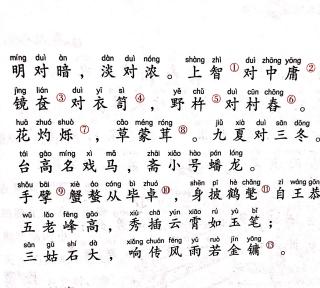 míng duì àn dàn duì nóng shàng zhì duì zhōng yōng
明对暗，淡对浓。上智①对中庸②
jìng lián duì yī sì yě chǔ duì cūn chōng
镜奁③对衣笥④，野杵⑤对村舂⑥。
huā zhuó shuò cǎo méng róng jiǔ xià duì sān dōng
花灼烁⑦，草蒙茸⑧。九夏对三冬。
tái gāo míng xì mǎ zhāi xiǎo hào pán lóng
台高名戏马，斋小号蟠龙。
shǒu bāi xiè áo cóng bì zhuó shēn pī hè chǎng zì wáng gōng
手擘⑨蟹螯从毕卓⑩，身披鹤氅⑪自王恭
wǔ lǎo fēng gāo xiù chā yún xiāo rú yù bǐ
五老峰高，秀插云霄如玉笔；
sān gū shí dà xiǎng chuán fēng yǔ ruò jīn yōng
三姑石大，响传风雨若金镛⑬。